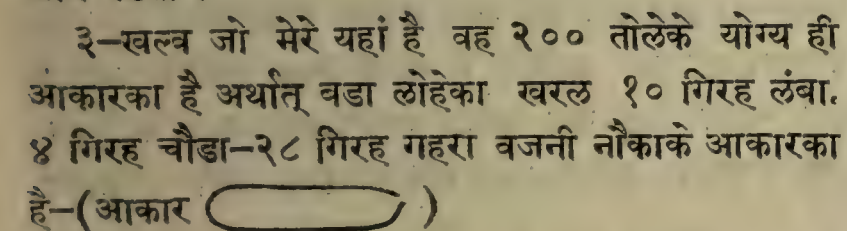 ३–खल्व जो मेरे यहां है वह २०० तोलेके योग्य ही
आकारका है अर्थात् बडा लोहेका खरल १० गिरह लंबा.
४ गिरह चौडा–२८ गिरह गहरा वजनी नौकाके आकारका
है–(आकार )